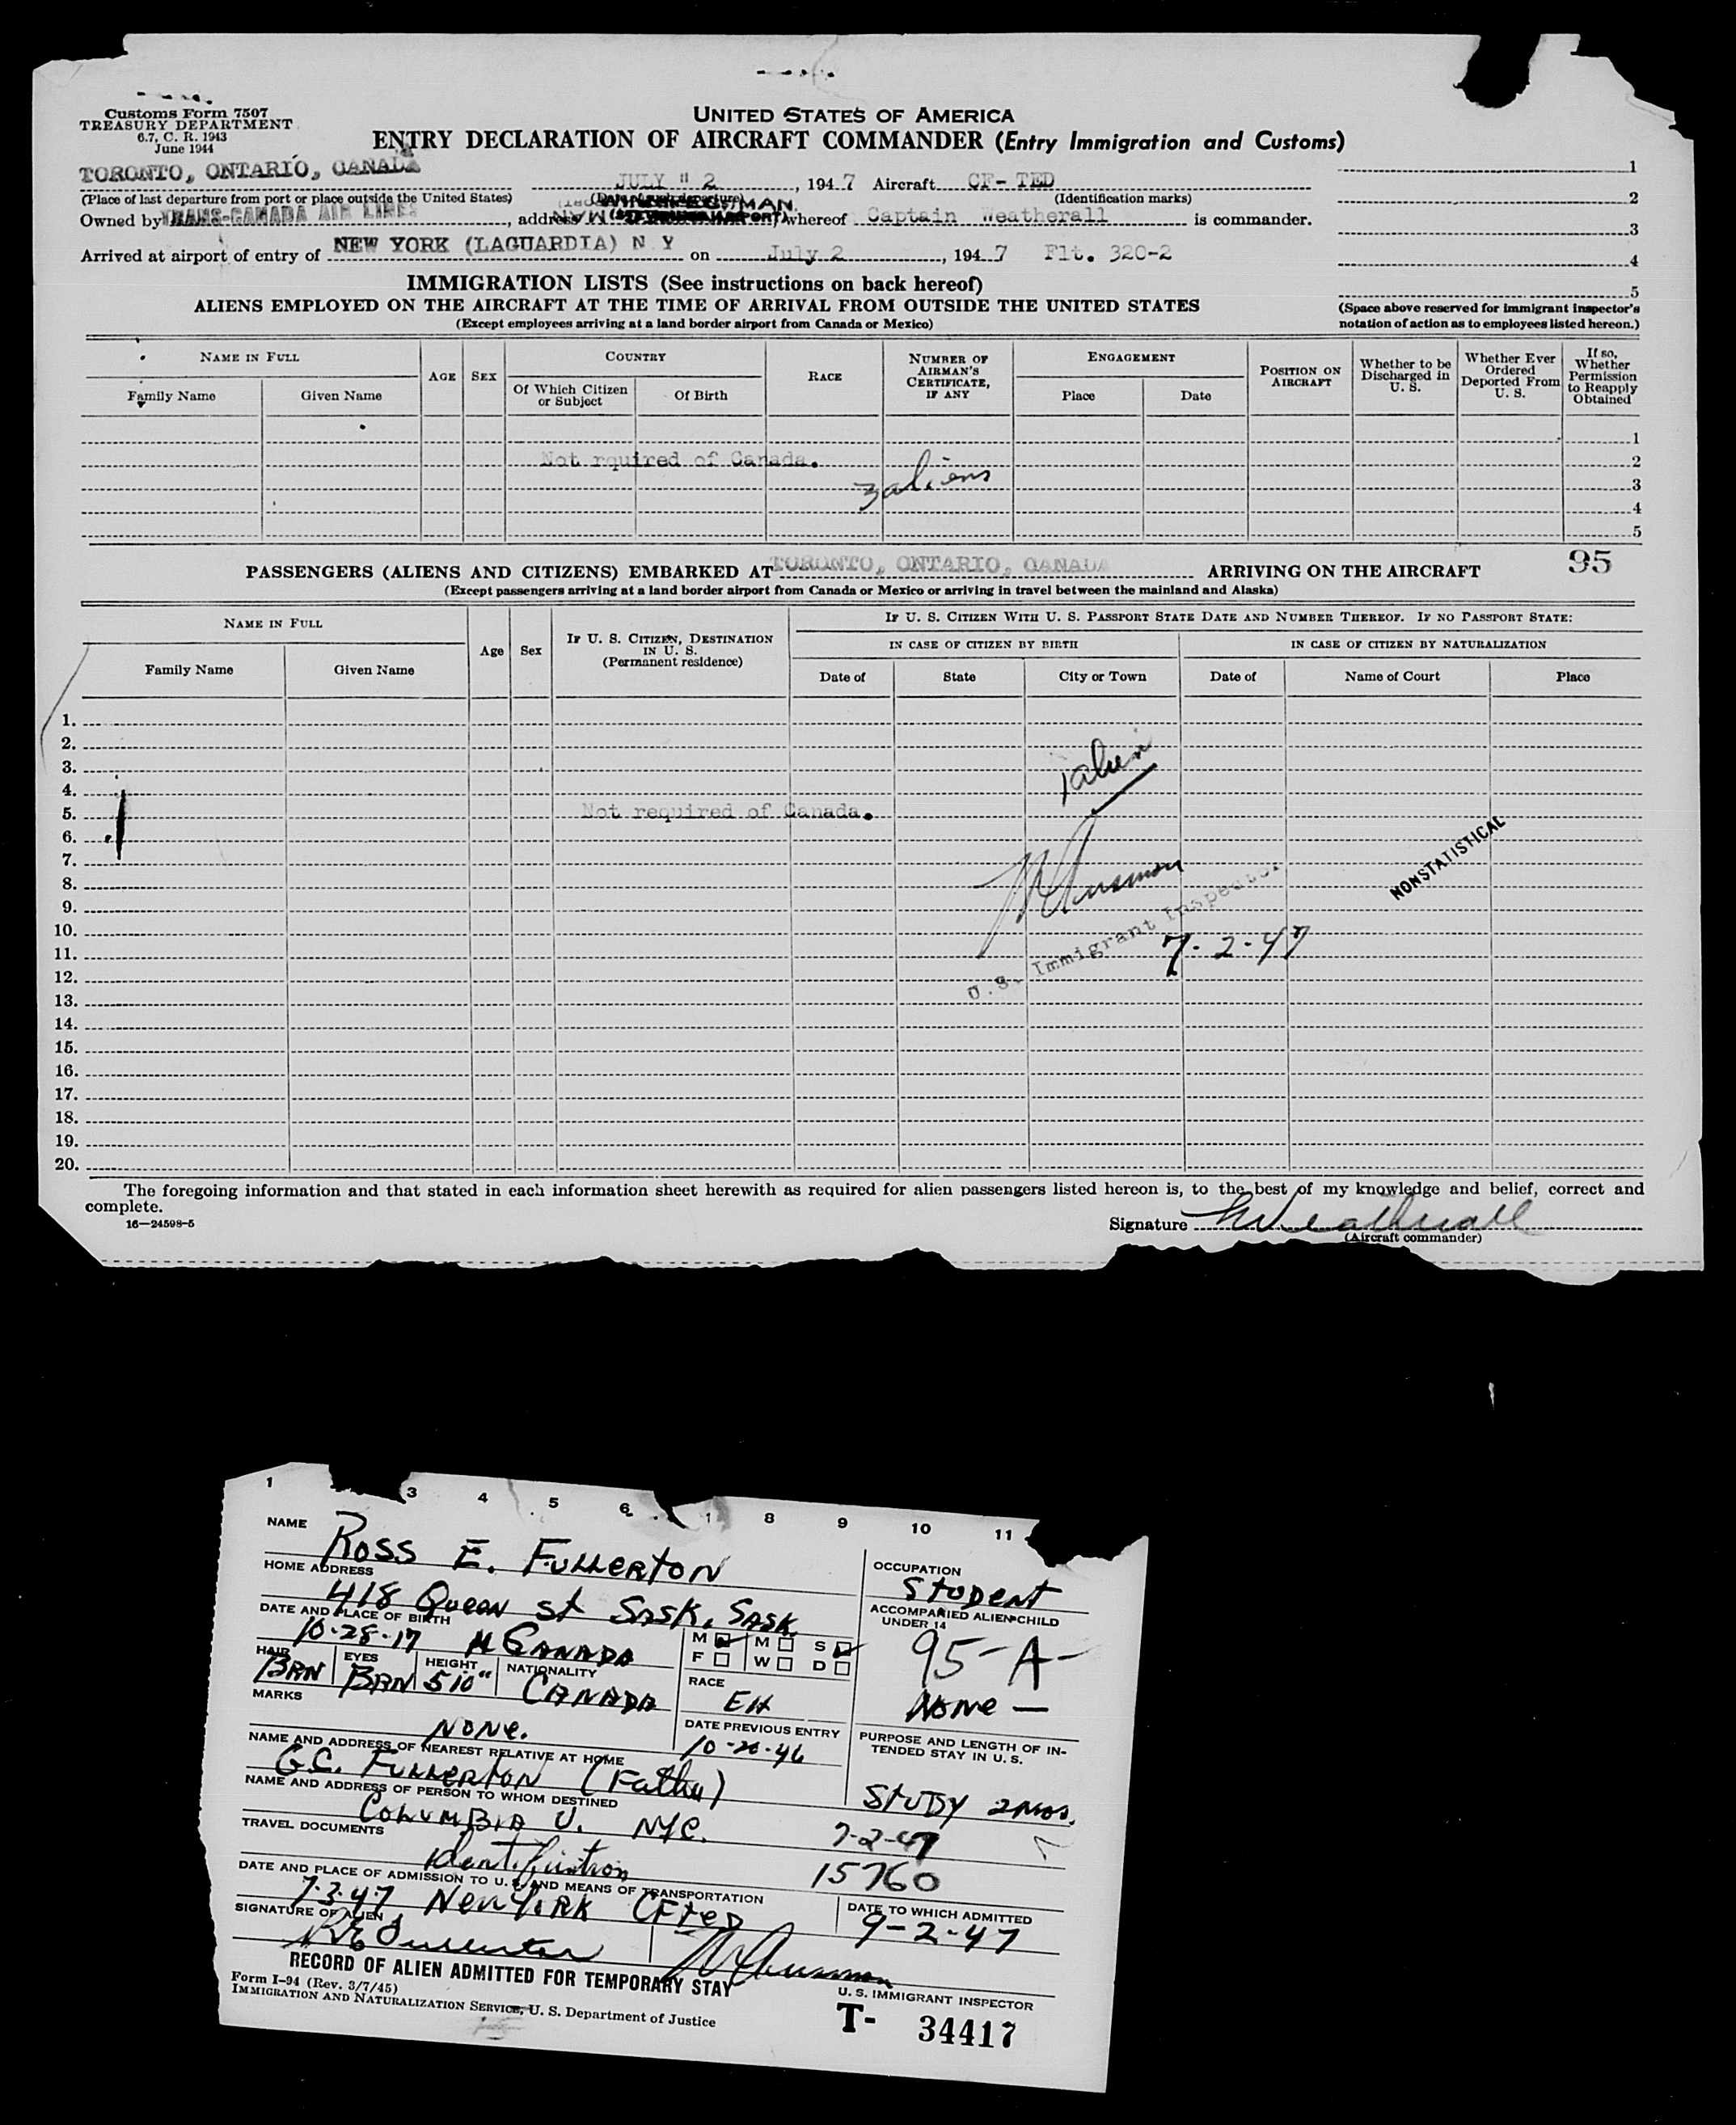 Customs Form 7507
TREASURY DEPARTMENT
6.7, C. R. 1943
June 1944
UNITED STATES OF AMERICA
ENTRY DECLARATION OF AIRCRAFT COMMANDER (Entry Immigration and Customs)
TORONTO, ONTARIO, CANADA JULY " 2, 1947 Aircraft CF-TED
(Place of last departure from port or place outside the United States) (Identification marks)
Owned by TRANS-CANADA AIR LINES, address WINNIPEG, MAN. whereof Captain Weatherall is commander.
Arrived at airport of entry of NEW YORK (LAGUARDIA) N Y on July 2, 1947 Flt. 320-2
1
2
3
4
5
(Space above reserved for immigrant inspector's notation of action as to employees listed hereon.)
IMMIGRATION LISTS (See instructions on back hereof)
ALIENS EMPLOYED ON THE AIRCRAFT AT THE TIME OF ARRIVAL FROM OUTSIDE THE UNITED STATES
(Except employees arriving at a land border airport from Canada or Mexico)
NAME IN FULL
Family Name Given Name
AGE SEX
COUNTRY
Of Which Citizen or Subject Of Birth
RACE
NUMBER OF AIRMAN'S CERTIFICATE, IF ANY
ENGAGEMENT
Place Date
POSITION ON AIRCRAFT
Whether to be Discharged in U. S.
Whether Ever Ordered Deported From U. S.
If so, Whether Permission to Reapply Obtained
1
Not rquired of Canada. 2
3 aliens 3
4
5
95
PASSENGERS (ALIENS AND CITIZENS) EMBARKED AT TORONTO, ONTARIO, CANADA ARRIVING ON THE AIRCRAFT
(Except passengers arriving at a land border airport from Canada or Mexico or arriving in travel between the mainland and Alaska)
NAME IN FULL
Family Name Given Name
Age Sex
IF U. S. CITIZEN, DESTINATION IN U. S.
(Permanent residence)
IF U. S. CITIZEN WITH U. S. PASSPORT STATE DATE AND NUMBER THEREOF. IF NO PASSPORT STATE:
IN CASE OF CITIZEN BY BIRTH IN CASE OF CITIZEN BY NATURALIZATION
Date of State City or Town Date of Name of Court Place
1.
2.
3. 1 alien
4.
5. Not required of Canada.
6.
7. NONSTATISTICAL
8.
9.
10. U. S. Immigrant Inspector
11. 7-2-47
12.
13.
14.
15.
16.
17.
18.
19.
20.
The foregoing information and that stated in each information sheet herewith as required for alien passengers listed hereon is, to the best of my knowledge and belief, correct and
complete.
16—24598-5
Signature Weatherall
(Aircraft commander)
1 3 4 5 6 8 9 10 11
NAME Ross E. Fullerton
HOME ADDRESS 418 Queen St Sask, Sask.
DATE AND PLACE OF BIRTH 10-28-17 Canada
M F M W S D
HAIR BRN EYES BRN HEIGHT 5 10" NATIONALITY CANADA
RACE EH
MARKS None.
DATE PREVIOUS ENTRY
NAME AND ADDRESS OF NEAREST RELATIVE AT HOME
G.C. Fullerton (Father)
NAME AND ADDRESS OF PERSON TO WHOM DESTINED
Columbia U. NYC.
TRAVEL DOCUMENTS
Identification
OCCUPATION
Student
ACCOMPANIED ALIEN CHILD UNDER 14
95-A-
None —
PURPOSE AND LENGTH OF INTENDED STAY IN U. S.
STUDY 2 mos.
7-2-47
15760
DATE AND PLACE OF ADMISSION TO U. S. AND MEANS OF TRANSPORTATION
7-3-47, New York CFTED
DATE TO WHICH ADMITTED
9-2-47
SIGNATURE OF ALIEN
R E Fullerton
RECORD OF ALIEN ADMITTED FOR TEMPORARY STAY
U. S. IMMIGRANT INSPECTOR
Form I-94 (Rev. 3/7/45)
IMMIGRATION AND NATURALIZATION SERVICE, U. S. Department of Justice
T- 34417